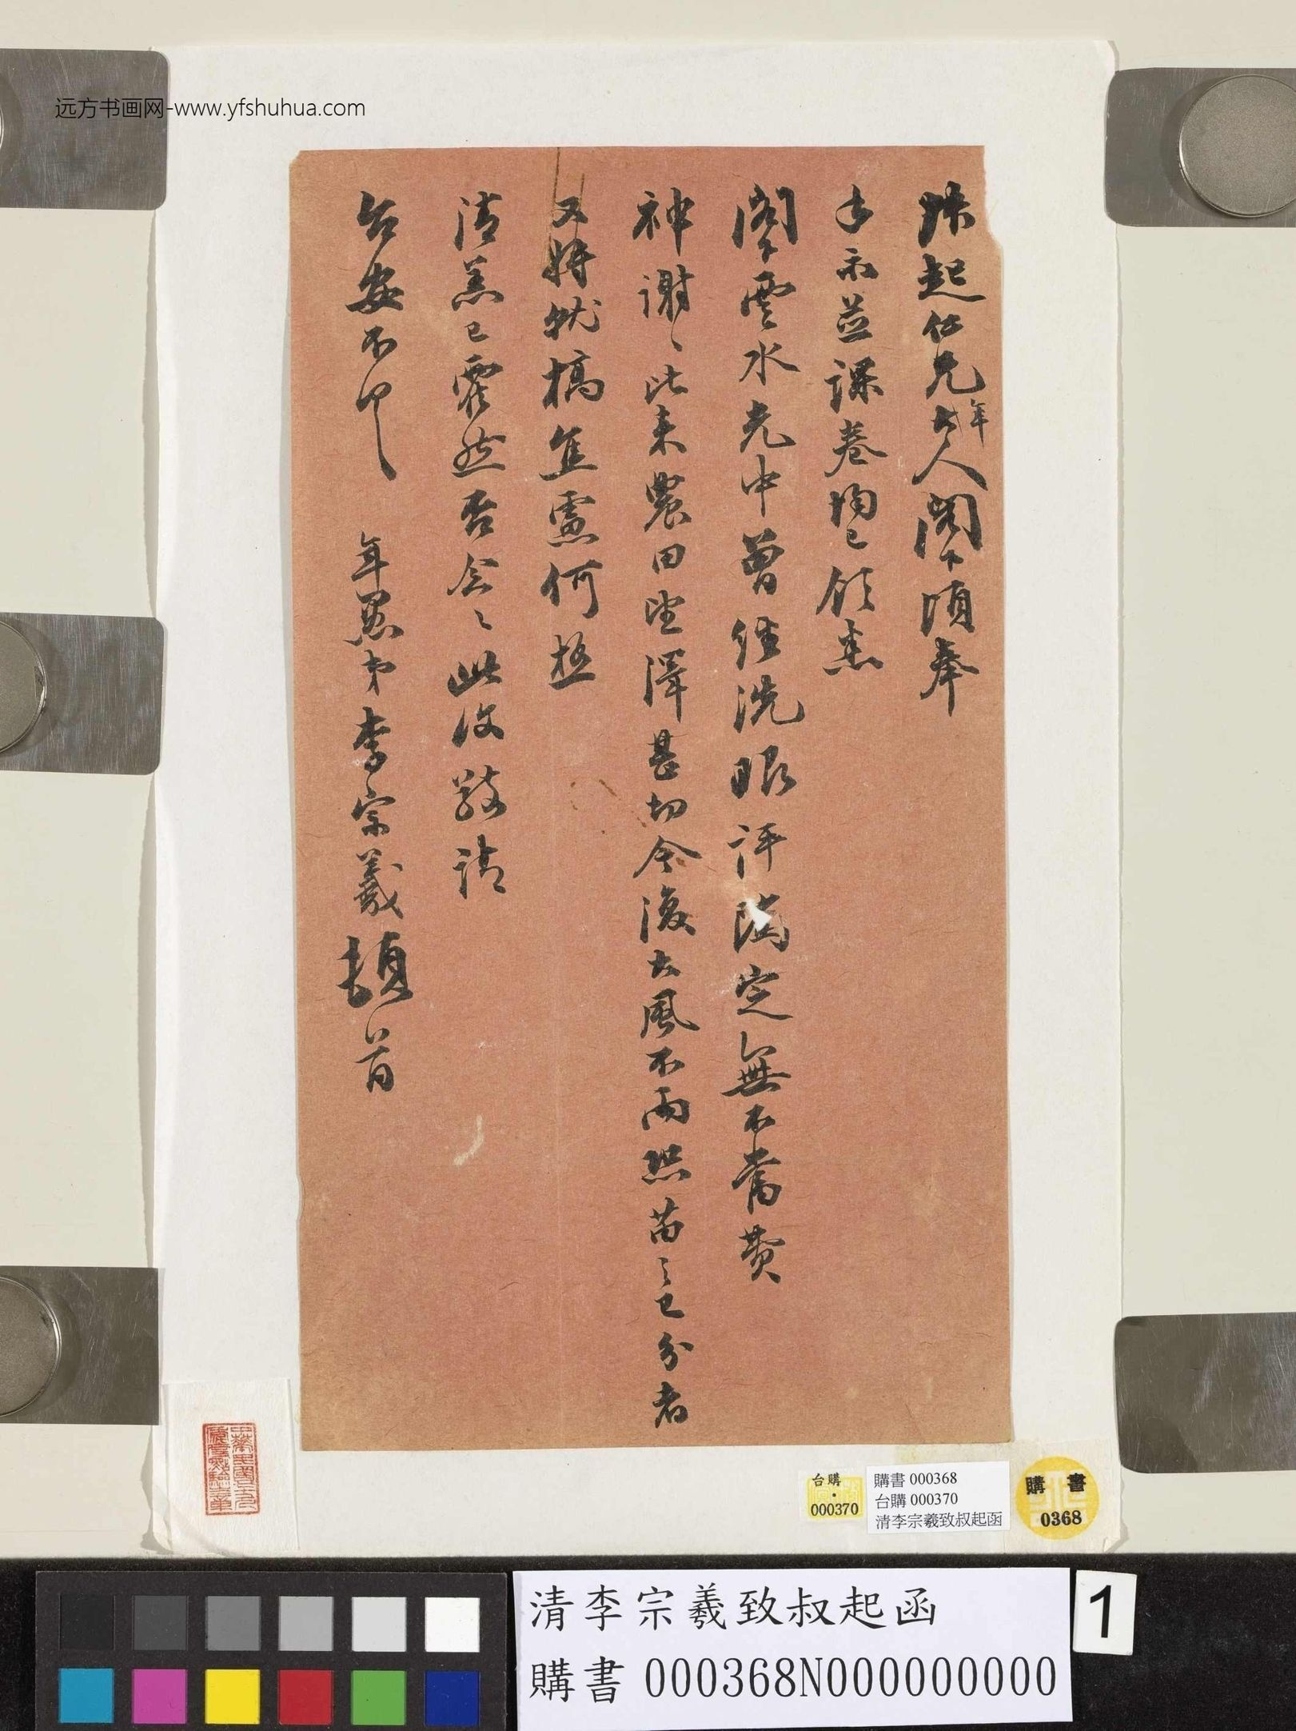 远方书画网-www.yfshuhua.com
起仁兄年大人閣下頃奉
手示並課卷均已領悉
閣下雲水光中曾經洗眼評隲定無不當費
神謝謝比來農田望澤甚切今復大風不雨恐苗之已分者
又將就槁焦慮何極
清恙已霍然否念念此復敬請
台安不
年愚弟李宗羲頓首
台購
·
000370
購書 000368
台購 000370
清李宗羲致叔起函
購書
0368
清李宗羲致叔起函
1
購書 000368N000000000